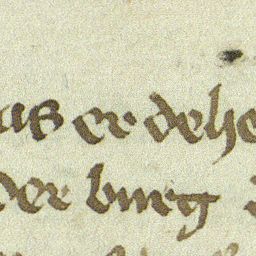 as er dehe
der burg